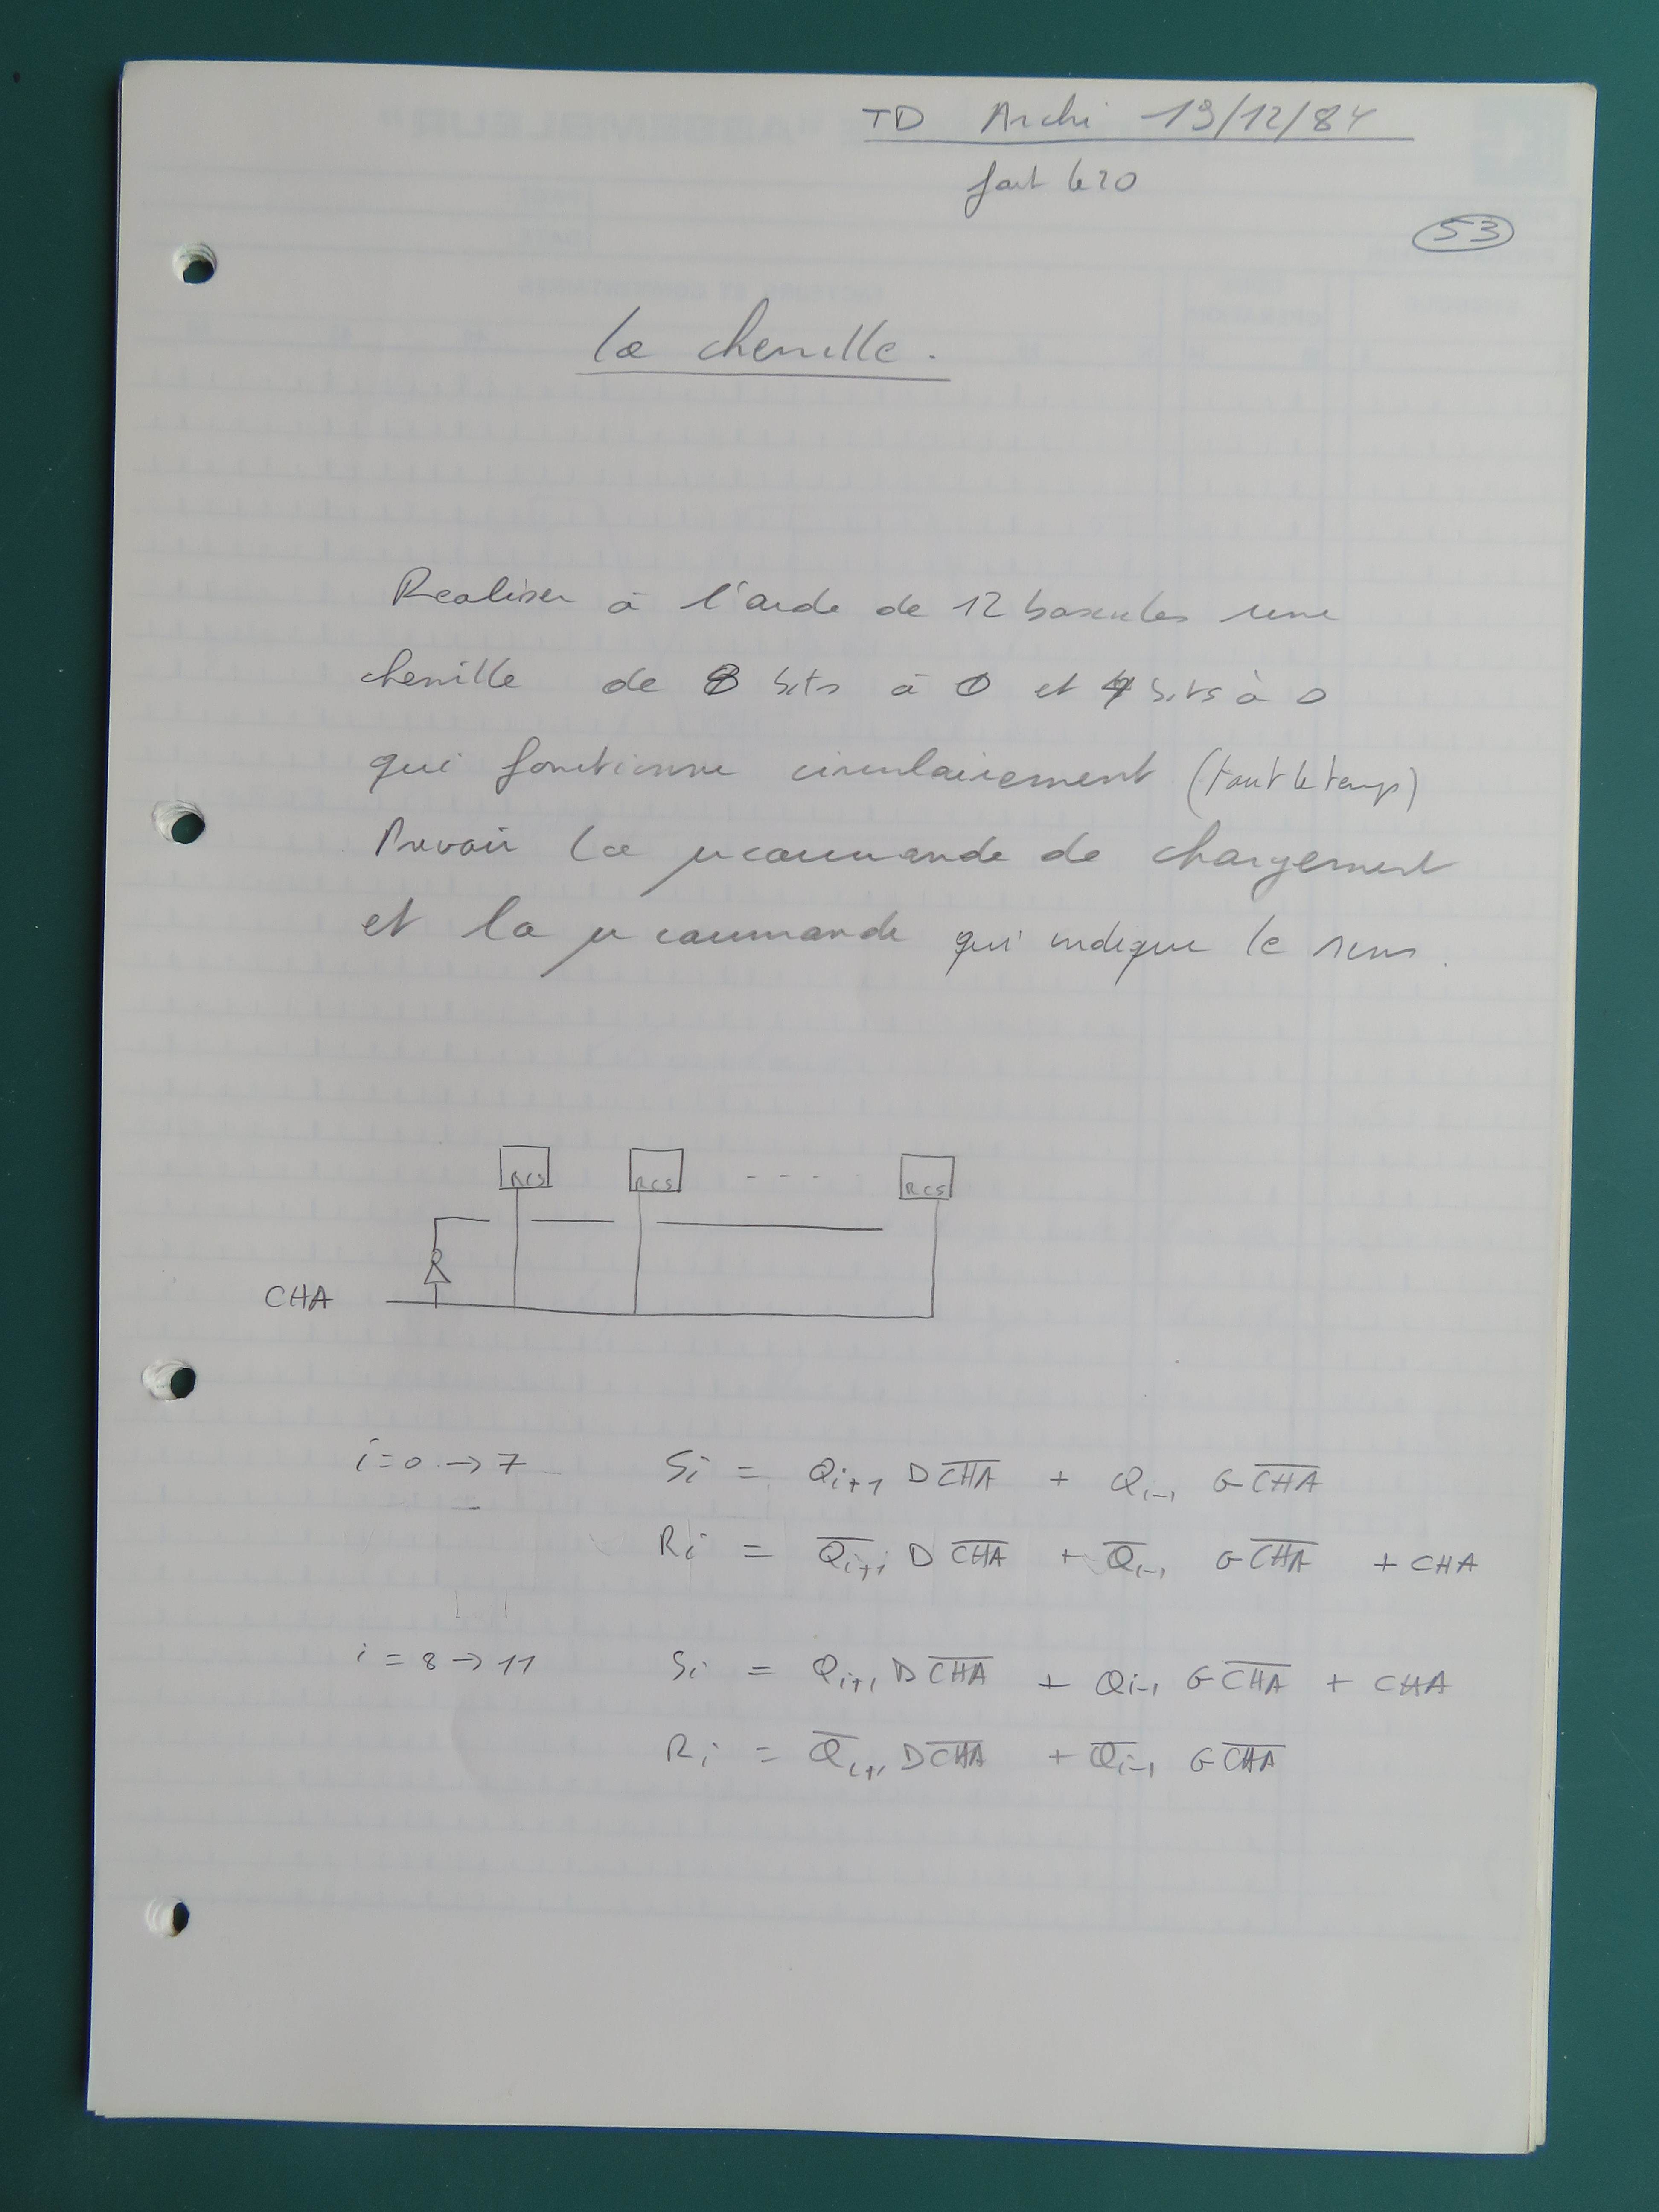 TD Archi 19/12/84
fait le 20
53
La chenille.
Realiser à l'aide de 12 bascules une
chenille de 8 bits à 0 et 4 bits à 0
qui fonctionne circulairement (tout le temps)
Prevoir la µcommande de chargement
et la µcommande qui indique le sens.
RCS RCS - - - RCS
CHA
i=0 → 7 Si = Qi+1 D C̅H̅A̅ + Qi-1 G C̅H̅A̅
Ri = Q̅i+1 D C̅H̅A̅ + Q̅i-1 G C̅H̅A̅ + CHA
i = 8 → 11 Si = Qi+1 D C̅H̅A̅ + Qi-1 G C̅H̅A̅ + CHA
Ri = Q̅i+1 D C̅H̅A̅ + Q̅i-1 G C̅H̅A̅